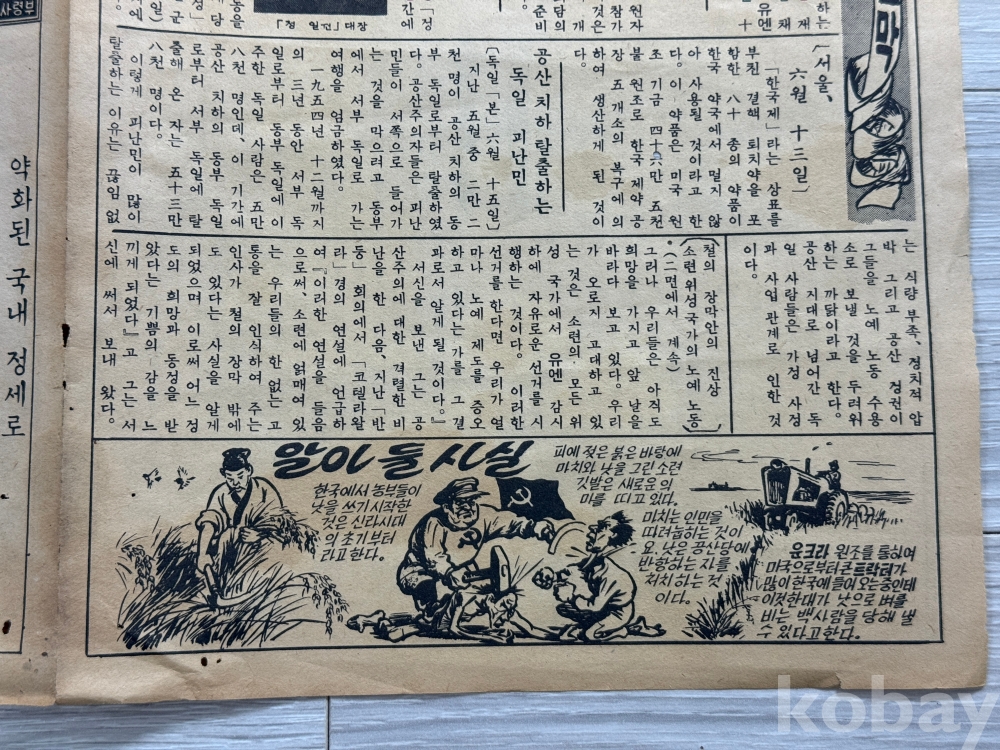 「정 일권」대장
〔서울、
六월 十三일〕
「한국제」라는 상표를
부친 결핵 퇴치약을 포
함한 八十 종의 약품이
한국 약국에서 멀지 않
아 사용될 것이라고 한
다。이 약품은 미국 원
조 기금 四十六만 五천
불 원조로 한국 제약 공
장 五개소의 복구에 의
하여 생산하게 된 것이
다。
공산 치하 탈출하는
독일 피난민
〔독일「본」六월 十五일〕
지난 五월 중 二만 二
천 명이 공산 치하의 동
부 독일로부터 탈출하였
다。공산주의자들은 피난
민들이 서쪽으로 들어가
는 것을 막으려고 동부
에서 서부 독일로 가는
여행을 엄금하였다。
一九五四년 十二월까지
의 三년 동안 서부 독
일로부터 동부 독일에 이
주한 독일 사람은 五만
八천 명인데、이 기간에
공산 치하의 동부 독일
로부터 서부 독일에 탈
출해 온 자는 五十三만
八천 명이다。
이렇게 피난민이 많이
탈출하는 이유는 끊임 없
는 식량 부족、정치적 압
박 그리고 공산 정권이
그들을 노예 노동 수용
소로 보낼 것을 두려워
하는 까닭이라고 한다。
공산 지대로 넘어간 독
일 사람들은 가정 사정
과 사업 관계로 인한 것
이다。
철의 장막안의 진상
소련위성국가의 노예 노동
(二면에서 계속)
그러나 우리들은 아직도
희망을 가지고 앞 날을
바라다 보고 있다。우리
가 오로지 고대하고 있
는 것은 소련의 모든 위
성 국가에서 유엔 감시
하에 자유로운 선거를 시
행하는 것이다。이러한
선거를 한다면 우리가 얼
마나 노예 제도를 증오
하고 있다는 가를 그 결
과로서 알게 될 것이다。』
서신을 보낸 그는 공
산주의에 대한 격렬한 비
난을 한 다음、지난「반
둥」회의에서「코텔라왈
라」경의 연설에 언급하
여『이러한 연설을 들음
으로써、소련에 얽매여 있
는 우리들의 한 없는 고
통을 잘 인식하여 주는
인사가 철의 장막 밖에
있다는 사실을 알게
되었으며 이로써 어느 정
도의 희망과 동정을 받
았다는 기쁨의 감을 느
끼게 되었다』고 그는 서
신에 써서 보내 왔다。
약화된 국내 정세로
알아 둘 사실
한국에서 농부들이
낫을 쓰기 시작한
것은 신라시대
의 초기부터
라고한다.
피에 젖은 붉은 바탕에
마치와 낫을 그린 소련
깃발은 새로운 의
미를 띠고 있다.
마치는 인민을
따려눕히는 것이
요. 낫은 공산당에
반항하는 자를
처치하는 것
이다.
운크라 원조를 통하여
미국으로부터 온 트랙터가
많이 한국에 들어 오는 중인데
이것한대가 낫으로 벼를
비는 백사람을 당해 낼
수 있다고한다.
kobay